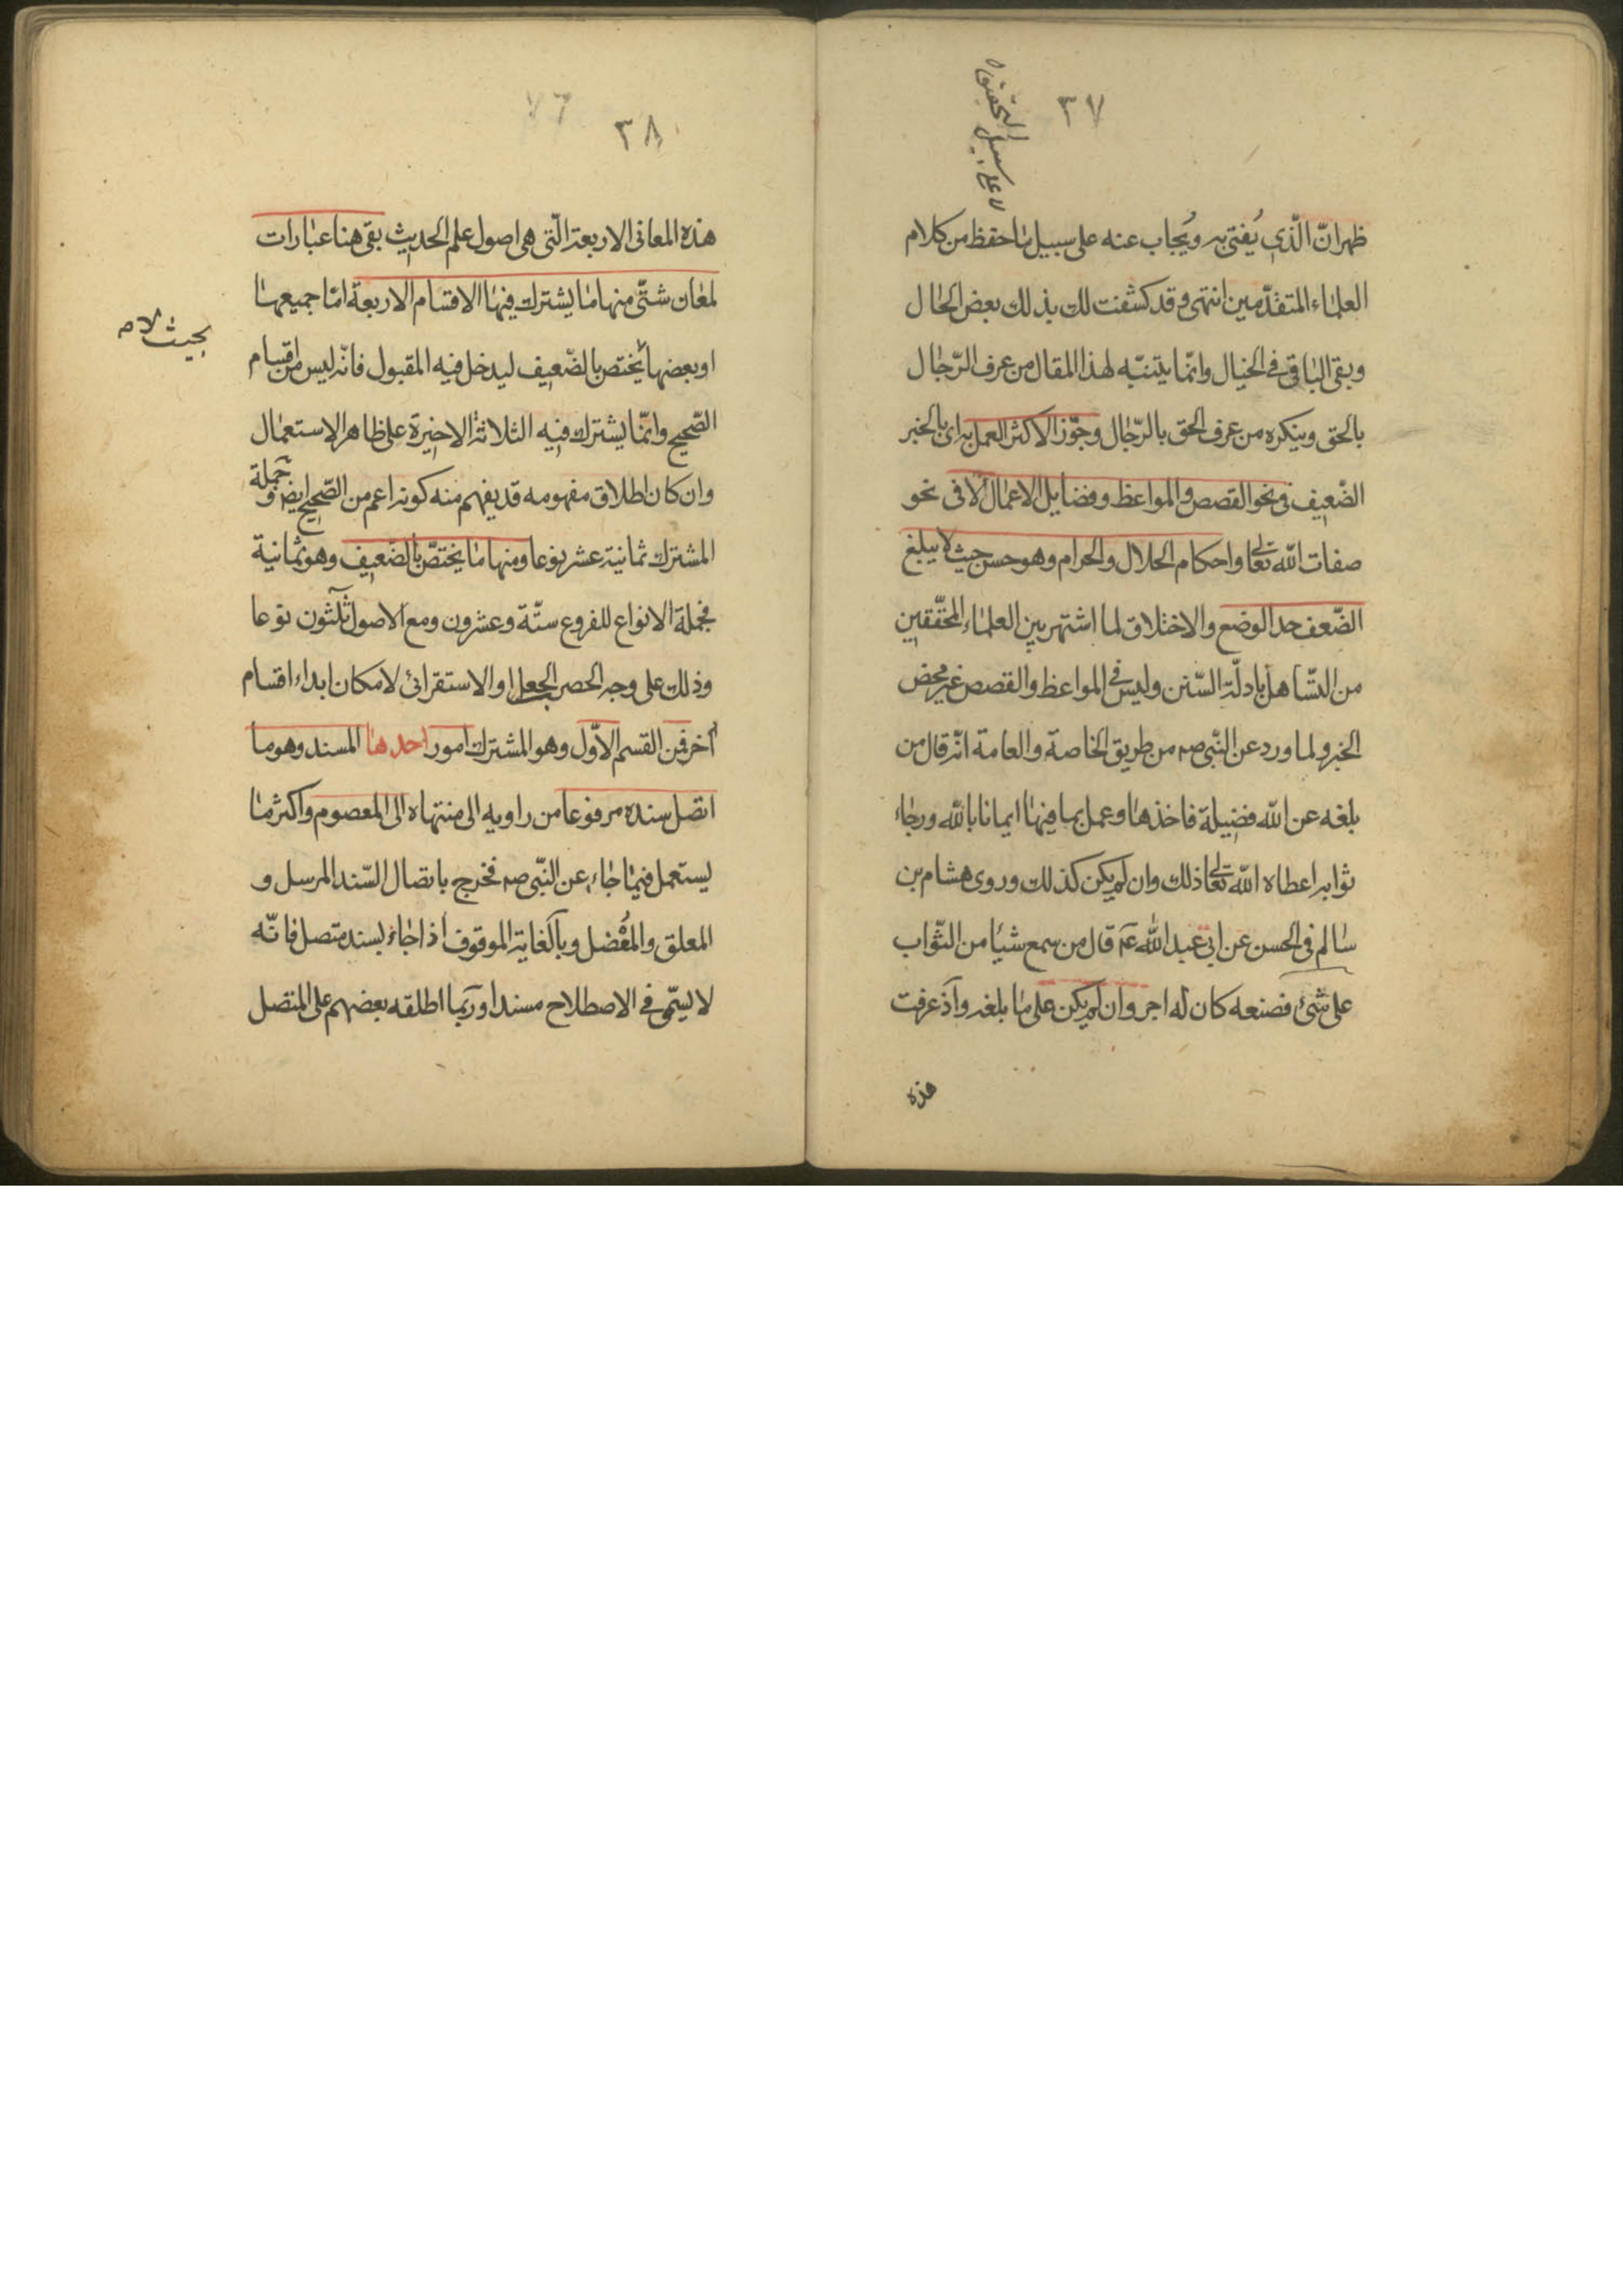 ٣٧
لا على سبيل التحقيق
ظهر انّ الّذي يُفتى به ويُجاب عنه على سبيل ما حفظ من كلام
العلماء المتقدّمين انتهى وقد كشفت لك بذلك بعض الحال
وبقى الباقى في الخيال وانّما يتنبّه لهذا المقال من عرف الرّجال
بالحق وينكره من عرف الحق بالرّجال وجوّز الاكثر العمل به اى بالخبر
الضّعيف فى نحو القصص والمواعظ وفضايل الاعمال لا فى نحو
صفات اللّه تعالى واحكام الحلال والحرام وهو حسن حيث لا يبلغ
الضّعف حد الوضع والاختلاق لما اشتهر بين العلماء المحقّقين
من التّساهل بادلّة السّنن وليس في المواعظ والقصص غير محض
الخبر ولما ورد عن النّبى صه من طريق الخاصة والعامة انّه قال من
بلغه عن اللّه فضيلة فاخذها وعمل بما فيها ايمانا باللّه ورجاء
ثوابه اعطاه اللّه تعالى ذلك وان لم يكن كذلك وروى هشام بن
سالم فى الحسن عن ابى عبد اللّه عم قال من سمع شيئا من الثّواب
على شئ فصنعه كان له اجر وان لم يكن على ما بلغه واذ عرفت
هذه
٣٨
٧٦
هذه المعانى الاربعة الّتى هى اصول علم الحديث بقى هنا عبارات
لمعان شتّى منها ما يشترك فيها الاقسام الاربعة امّا جميعها
او بعضها يختص بالضّعيف ليدخل فيه المقبول فانّه ليس من اقسام
بحيث لا
الصّحيح وانّما يشترك فيه الثلاثة الاخيرة على ظاهر الاستعمال
وان كان اطلاق مفهومه قد يفهم منه كونه اعم من الصّحيح ايض وجملة
المشترك ثمانية عشر نوعا ومنها ما يختصّ بالضّعيف وهو ثمانية
فجملة الانواع للفروع ستّة وعشرون ومع الاصول ثلثون نوعا
وذلك على وجه الحصر الجعلى او الاستقرائى لامكان ابداء اقسام
آخر فمن القسم الاوّل وهو المشترك امور احدها المسند وهو ما
اتصل سنده مرفوعا من راويه الى منتهاه الى المعصوم واكثر ما
يستعمل فيما جاء عن النّبى صه فخرج باتصال السّند المرسل و
المعلق والمعُضل وبالغاية الموقوف اذا جاء بسند متصل فانّه
لا يسمّى في الاصطلاح مسندا وربّما اطلقه بعضهم على المتصل